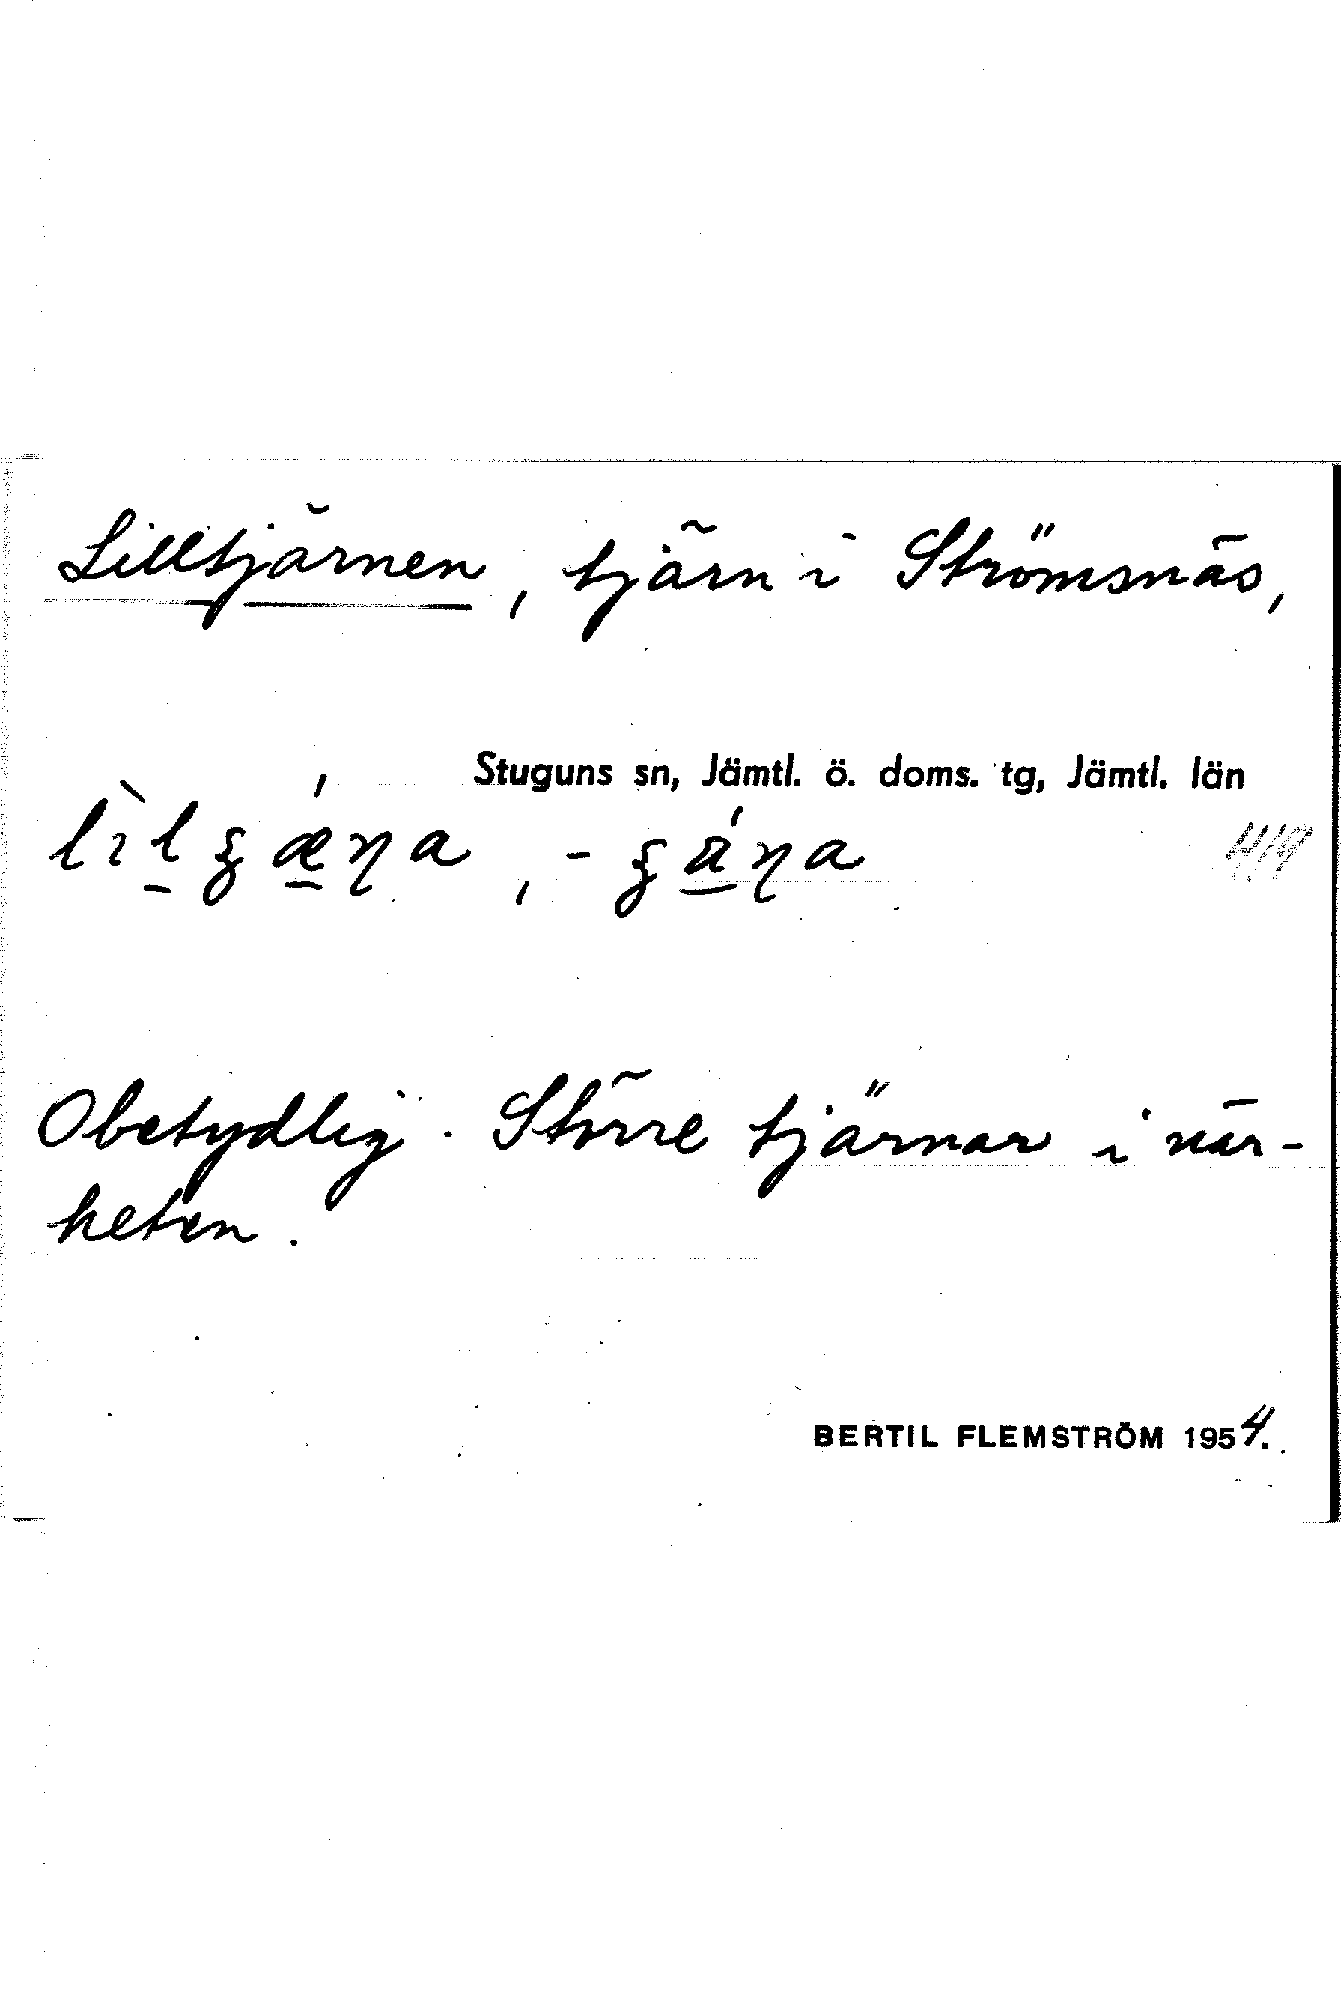 Lilltjärnen, tjärn i Strömsnäs,
Stuguns sn, Jämtl. ö. doms. tg, Jämtl. län
Obetydlig. Större tjärnar i när-
heten.
BERTIL FLEMSTRÖM 1954.